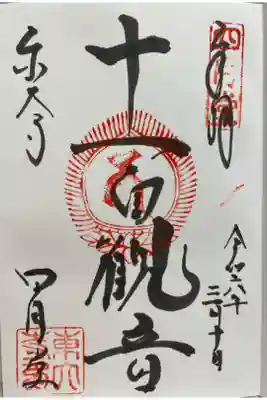 奉拝
令和六年
三月十日
十一面観音
東大寺
四月堂